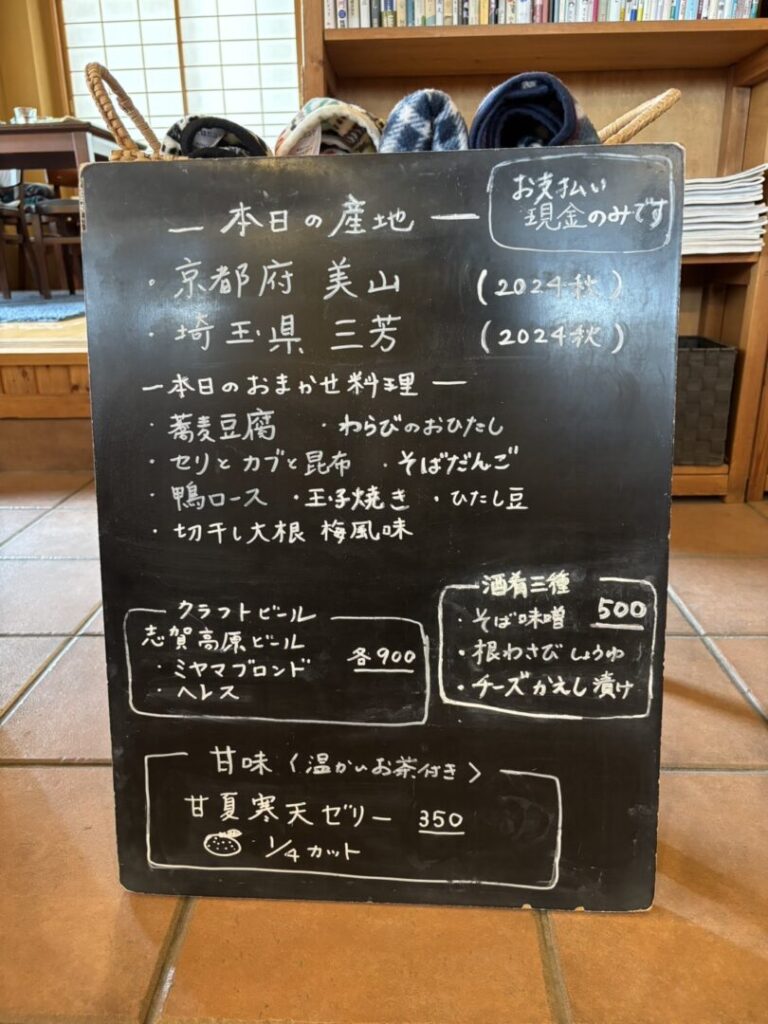 お支払い
現金のみです
― 本日の産地 ―
・京都府 美山 (2024秋)
・埼玉県 三芳 (2024秋)
―本日のおまかせ料理―
・蕎麦豆腐 ・わらびのおひたし
・セリとカブと昆布 ・そばだんご
・鴨ロース ・玉子焼き ・ひたし豆
・切干し大根 梅風味
酒肴三種
・そば味噌 500
・根わさびしょうゆ
・チーズかえし漬け
クラフトビール
志賀高原ビール
・ミヤマブロンド 各900
・ヘレス
甘味〈温かいお茶付き〉
甘夏寒天ゼリー 350
1/4カット